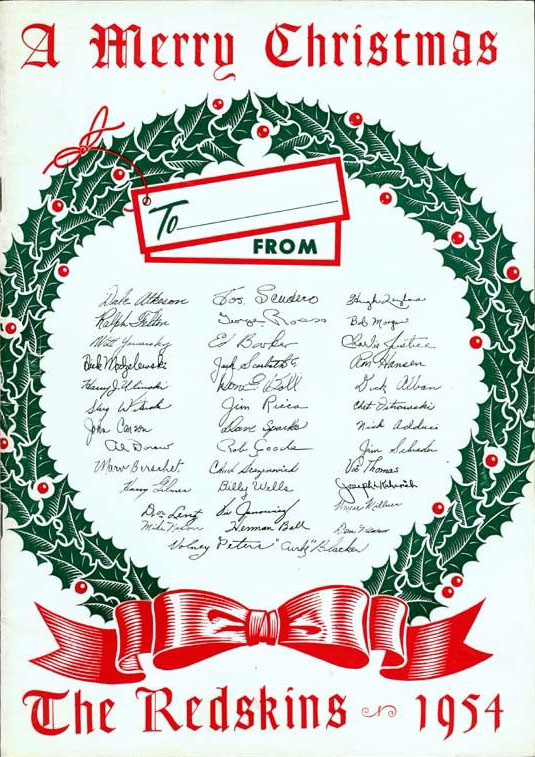 A Merry Christmas
To
FROM
Dale Atkeson Joe Scudero Hugh
Ralph Felton George Rosso Bob Morgan
Walt Yowarsky Ed Barker Charlie Justice
Dick Modzelewski Jack Scarbath Ron Hansen
Harry J. Ulinski Don E Boll Dick Alban
Jim Ricca Chet Ostrowski
John Carson Dave Sparks Nick Adduci
Al Dorow Rob Goode Jim Schrader
Marv Berschet Chuck Drazenovich Vic Thomas
Harry Gilmer Billy Wells Joseph
Vic Janowicz Wayne Millner
Mike Nixon Herman Ball
Volney "Peters" "Curly" Blacker
The Redskins 1954